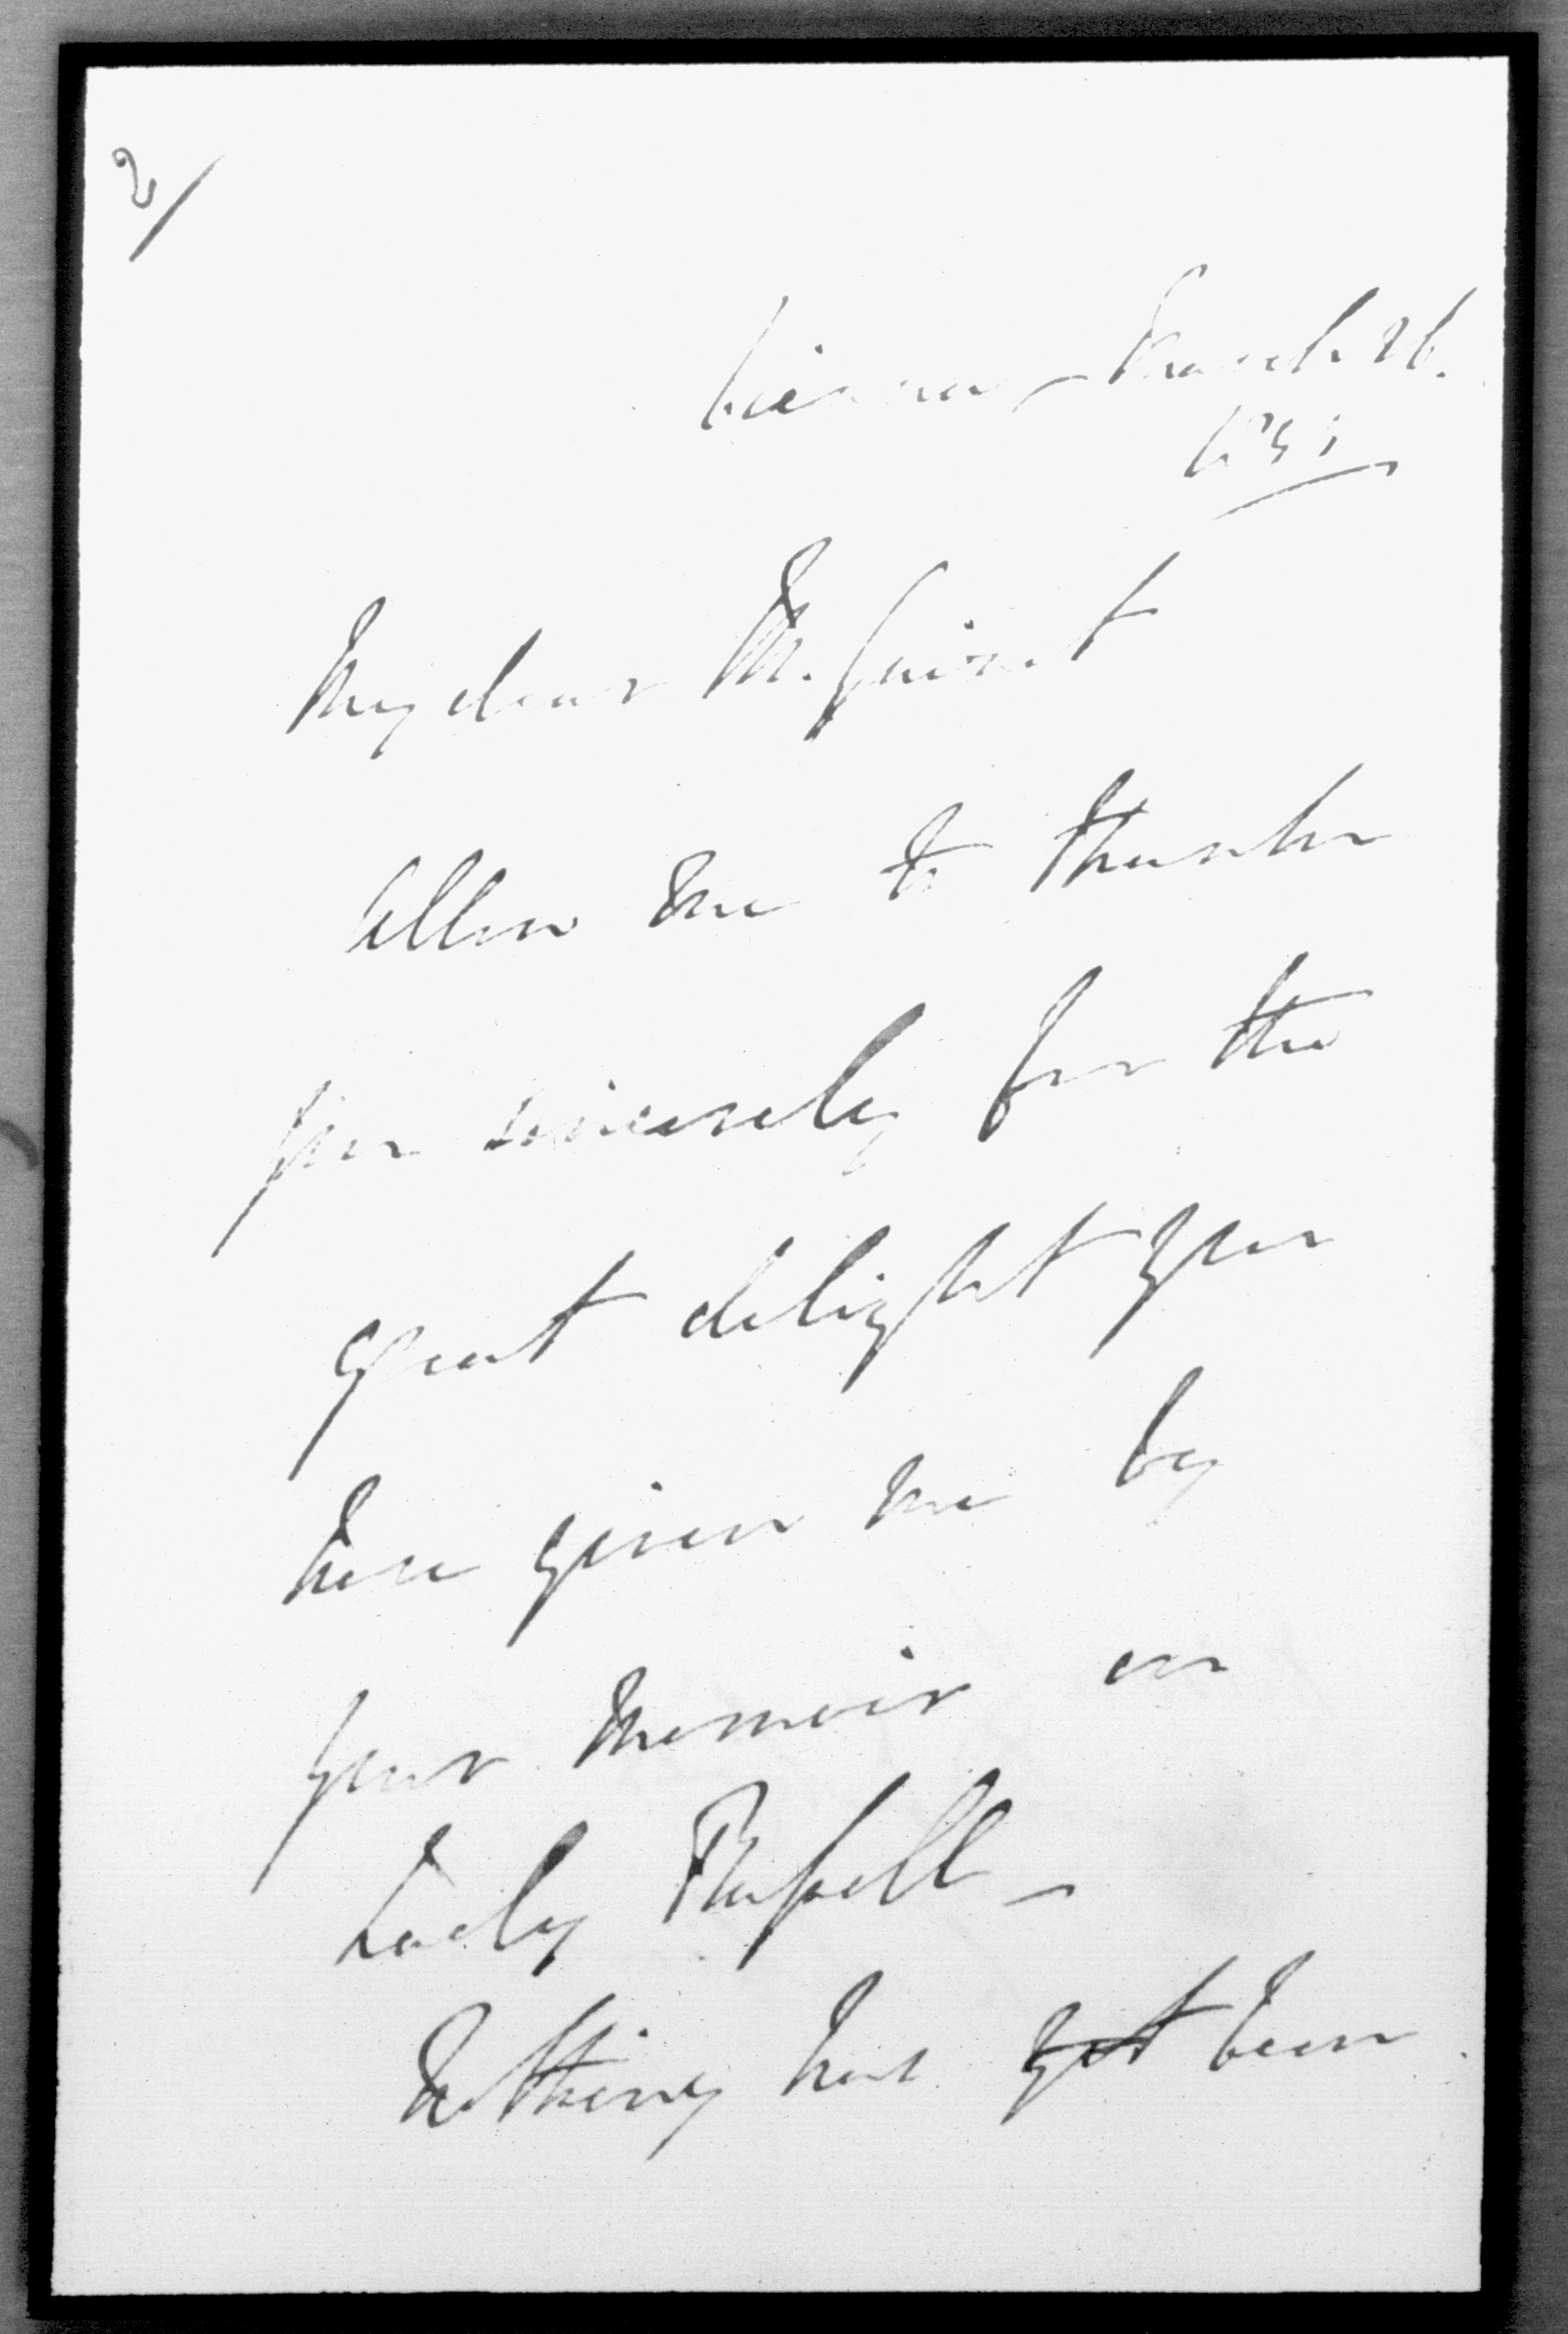 2/
Vienna - March 26.
1855
My dear M. Guizot
Allow me to thank
you sincerely for the
great delight you
have given me by
your Memoir on
Lady Russell -
Nothing has yet been